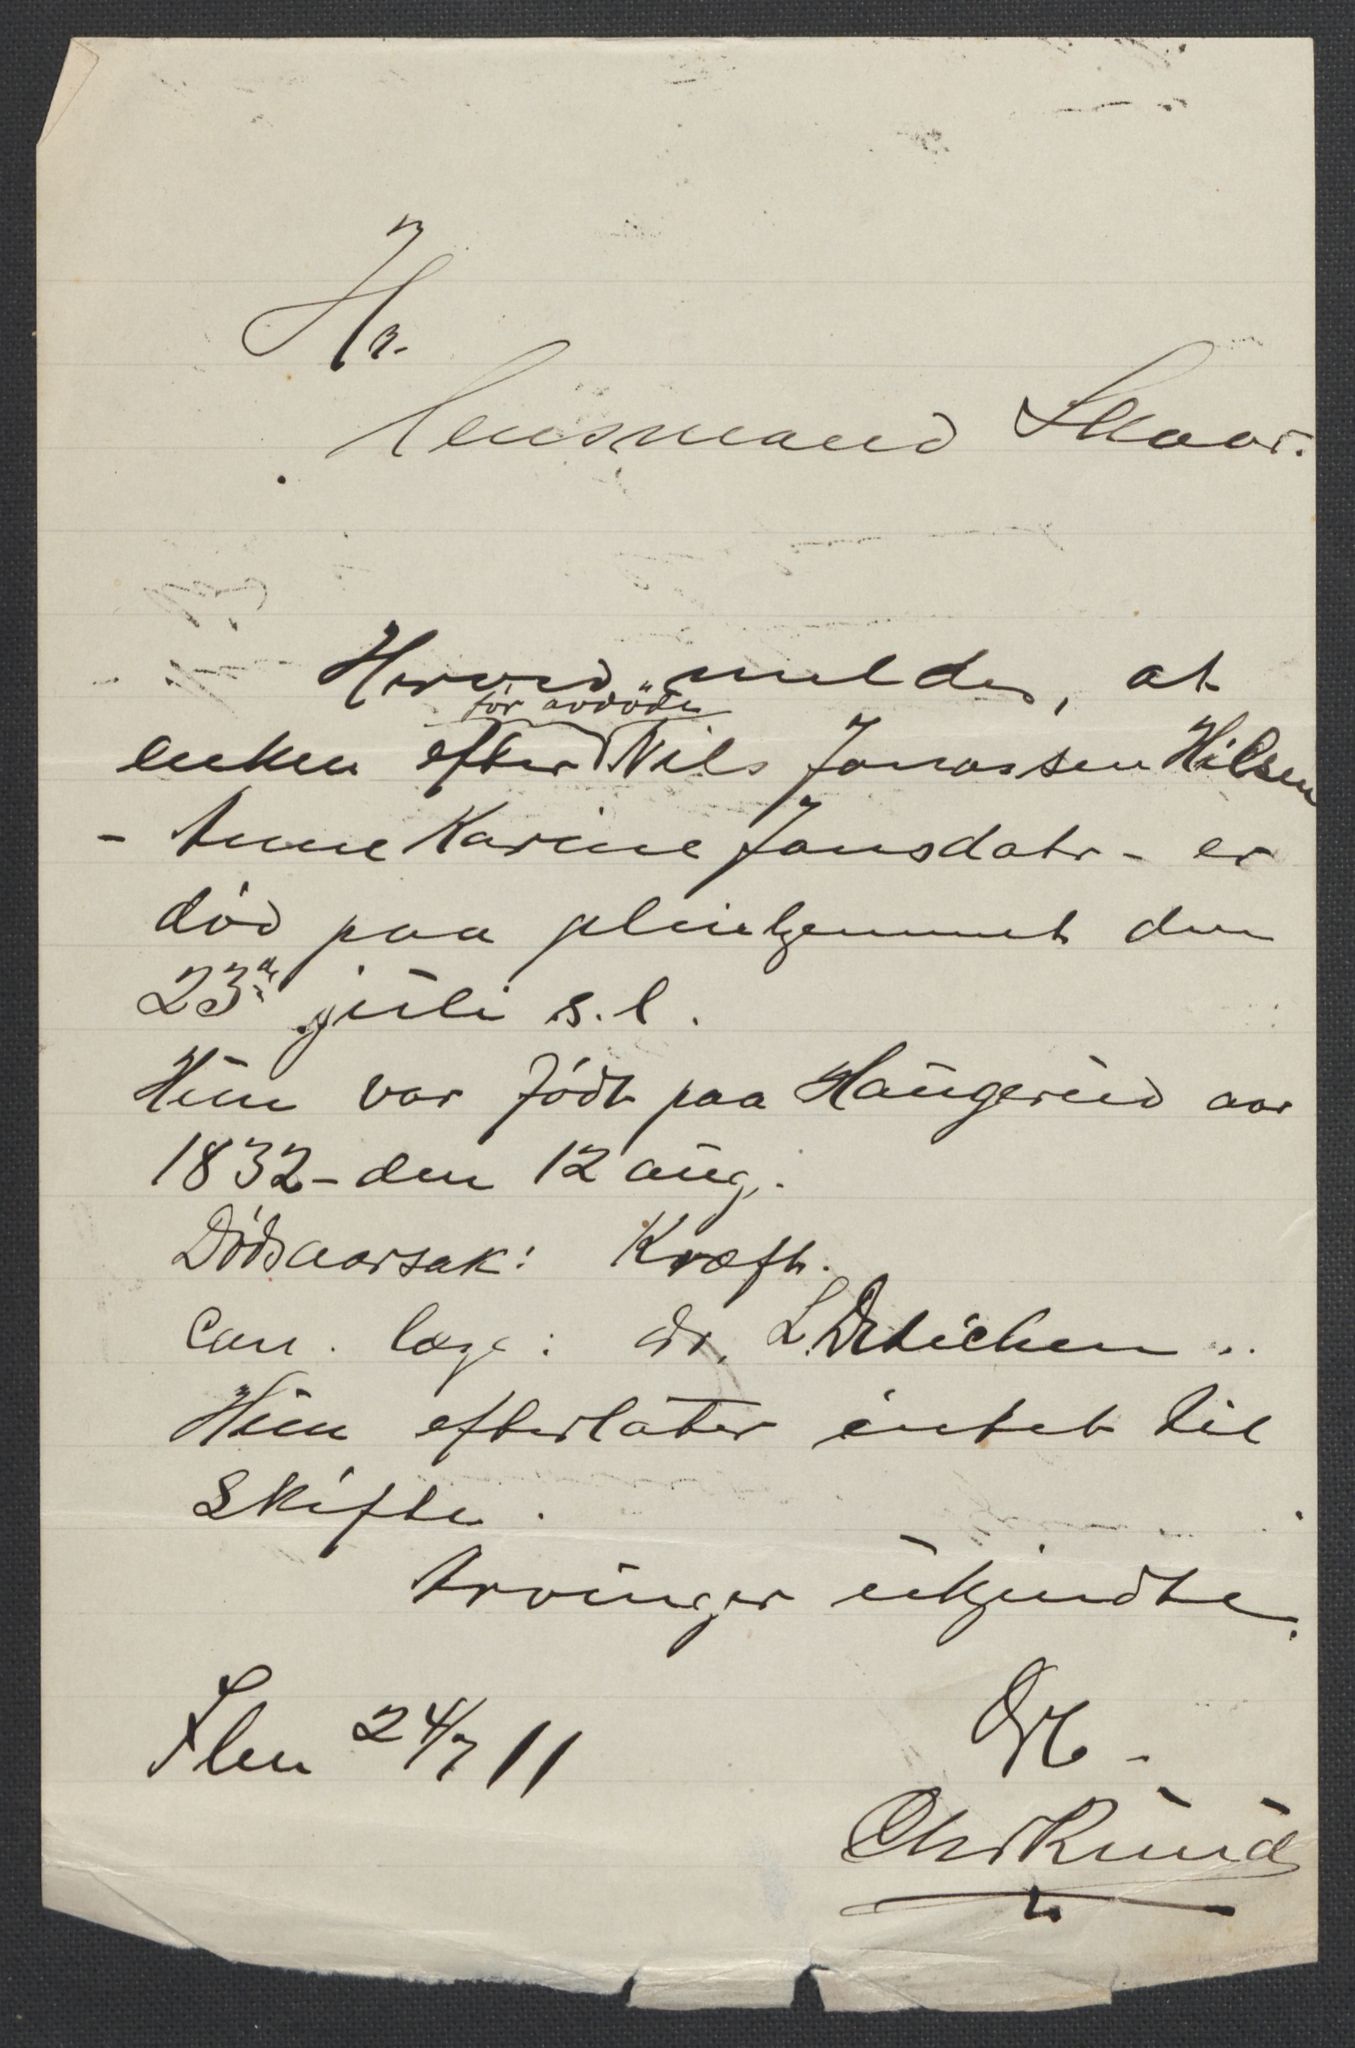 Hr.
lensmand Skaar.
Herved meldes, at
før avdøde
enken efter Nils Jonassen Hilsen
- Anne Karine Jonsdatr - er
død paa pleiehjemmet den
23de juli s.l.
Hun var født paa Haugerud aar
1832 - den 12 aug.
Dødsaarsak: Kræft.
Can. læge: dr. L. Dedichen..
Hun efterlater intet til
skifte.
Arvinger ukjendte.
Flen 24/7 11
Chr Ruud